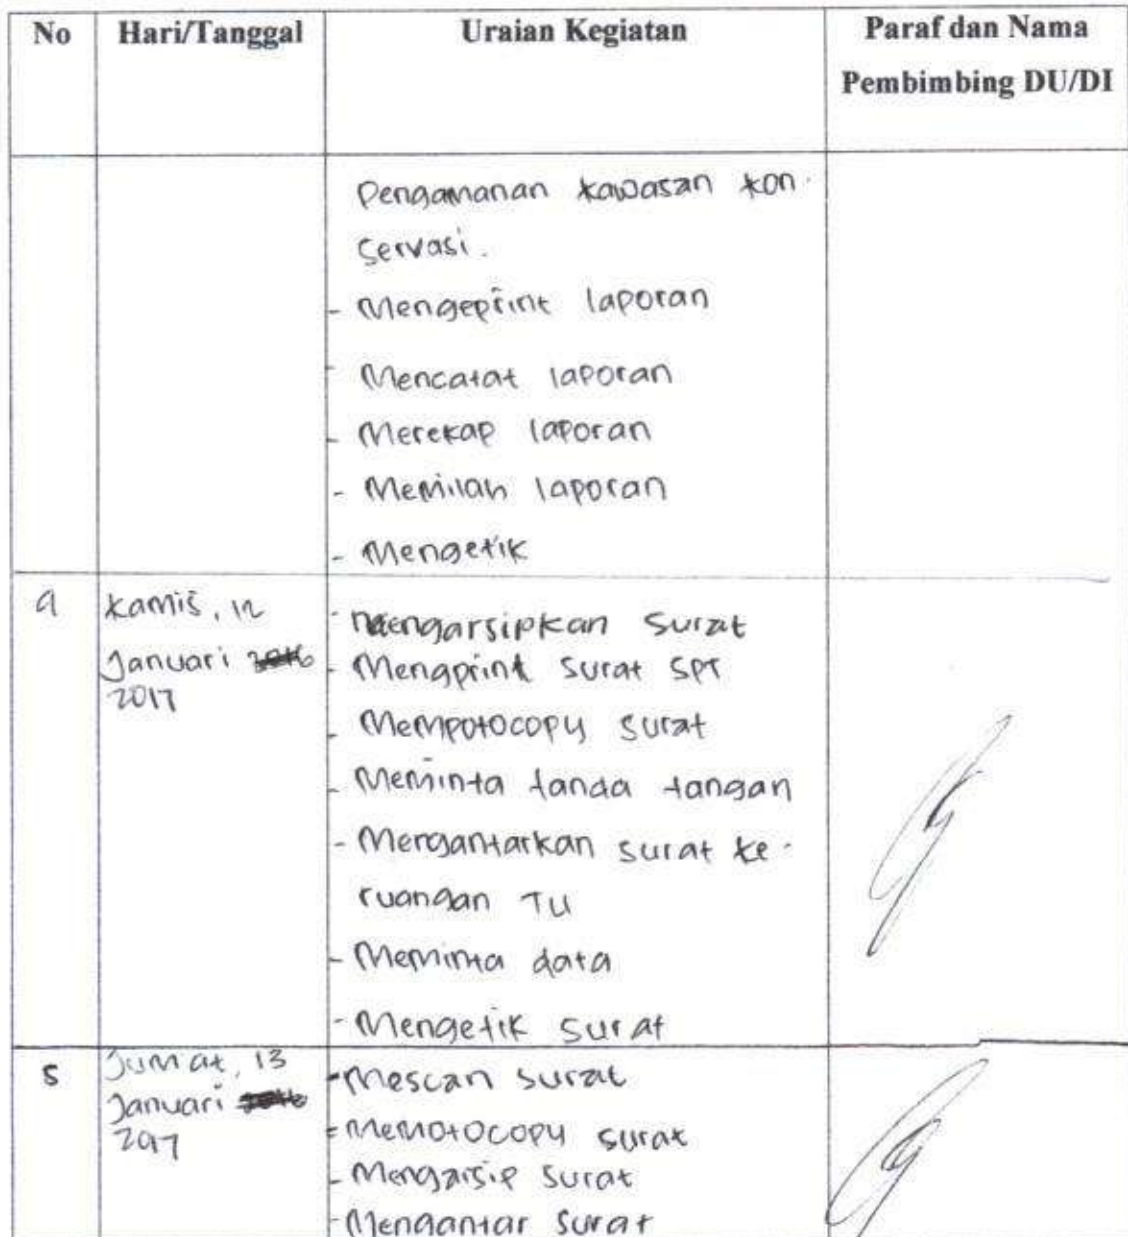 No Hari/Tanggal Uraian Kegiatan Paraf dan Nama
Pembimbing DU/DI
Pengamanan kawasan kon-
servasi.
- Mengeprint laporan
- Mencatat laporan
- Merekap laporan
- Memilah laporan
- Mengetik
4 Kamis, 12
Januari
2017
- Mengarsipkan Surat
- Mengprint Surat SPT
- Mempotocopy Surat
- Meminta tanda tangan
- Mengantarkan surat ke-
ruangan TU
- Meminta data
- Mengetik Surat
5 Jumat, 13
Januari
2017
- Mescan surat
- Memotocopy surat
- Mengarsip surat
- Mengantar surat